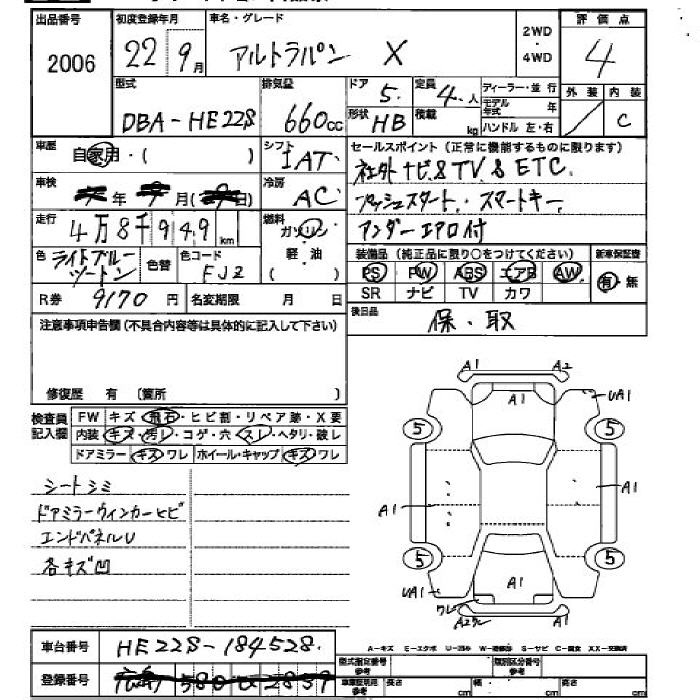 出品番号 初度登録年月 車名・グレード 2WD・4WD 評価点
2006 22 9月 アルトラパン X 4
型式 排気量 ドア 定員 ディーラー・並行 外装 内装
DBA-HE22S 660cc 5. 4.人 モデル年式 年 C
形状 積載 ハンドル 左・右
HB kg
車歴 シフト セールスポイント(正常に機能するものに限ります)
自家用・( ) IAT 社外ナビ&TV & ETC.
車検 冷房 プッシュスタート. スマートキー.
年 月( 日) AC アンダーエアロ付
走行 燃料
4万8千949km ガソリン・
色 色替 色コード 軽・油 装備品(純正品に限り○をつけてください) 新車保証書
ライトブルーツートン FJ2 ( ) PS PW ABS エアB AW 有・無
SR ナビ TV カワ
R券 9170円 名変期限 月 日 後日品
注意事項申告欄(不具合内容等は具体的に記入して下さい) 保・取
修復歴 有 〔箇所 〕
検査員記入欄 FW キズ・飛石・ヒビ割・リペア跡・X要
内装 キズ・汚レ・コゲ・穴・スレ・ヘタリ・破レ
ドアミラー キズ・ワレ ホイール・キャップ キズ・ワレ
シートシミ
ドアミラーウィンカーヒビ
エンドパネルU
各キズ凹
A1 A2
A1 UA1
5 5
A1 A1
5 5
UA1 A1
ワレ
車台番号 HE22S-184528.
登録番号
A-キズ E-エクボ
型式指定番号 類別区分番号
参考 参考
長さ cm 幅 cm 高さ cm